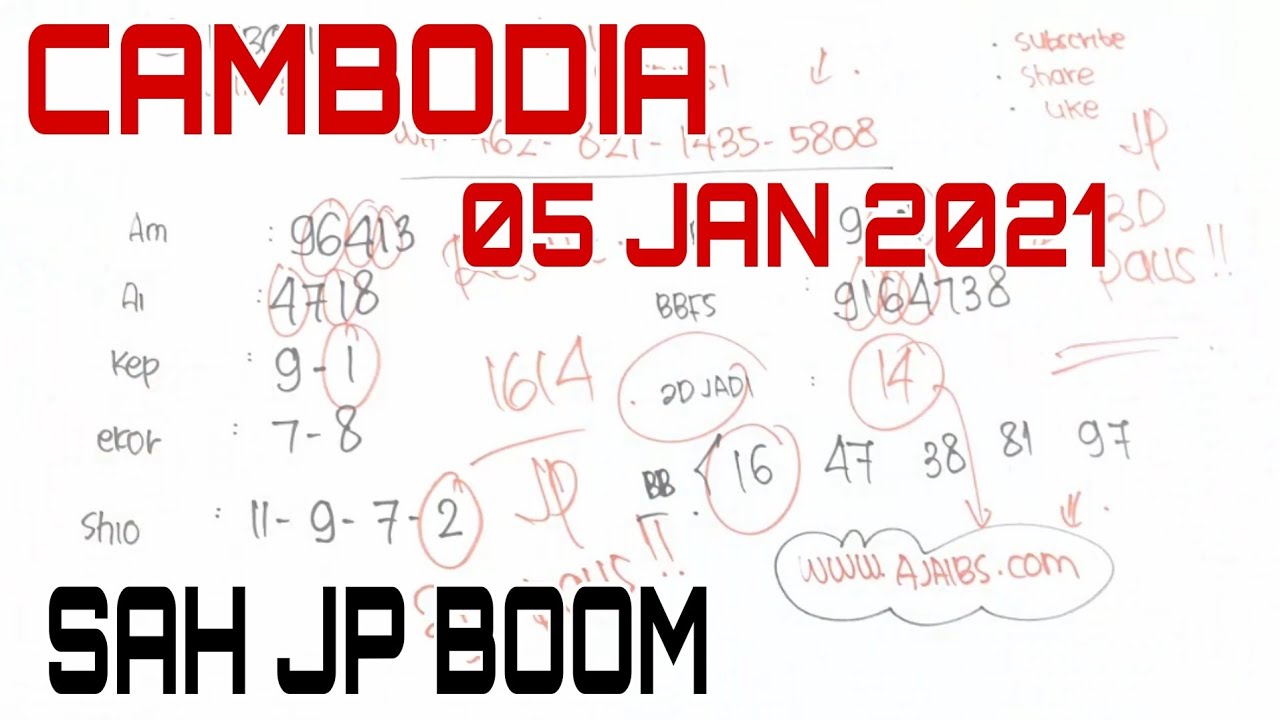 CAMBODIA
subscribe
share
like
462- 821- 1435- 5808
JP
05 JAN 2021
3D
paus !!
Am : 96413
Ai : 4718
BBFS : 9164738
Kep : 9 - 1
1614
2D JADI : 14
ekor : 7 - 8
BB 16 47 38 81 97
JP
Shio : 11 - 9 - 7 - 2
www.AJAIBS.com
SAH JP BOOM